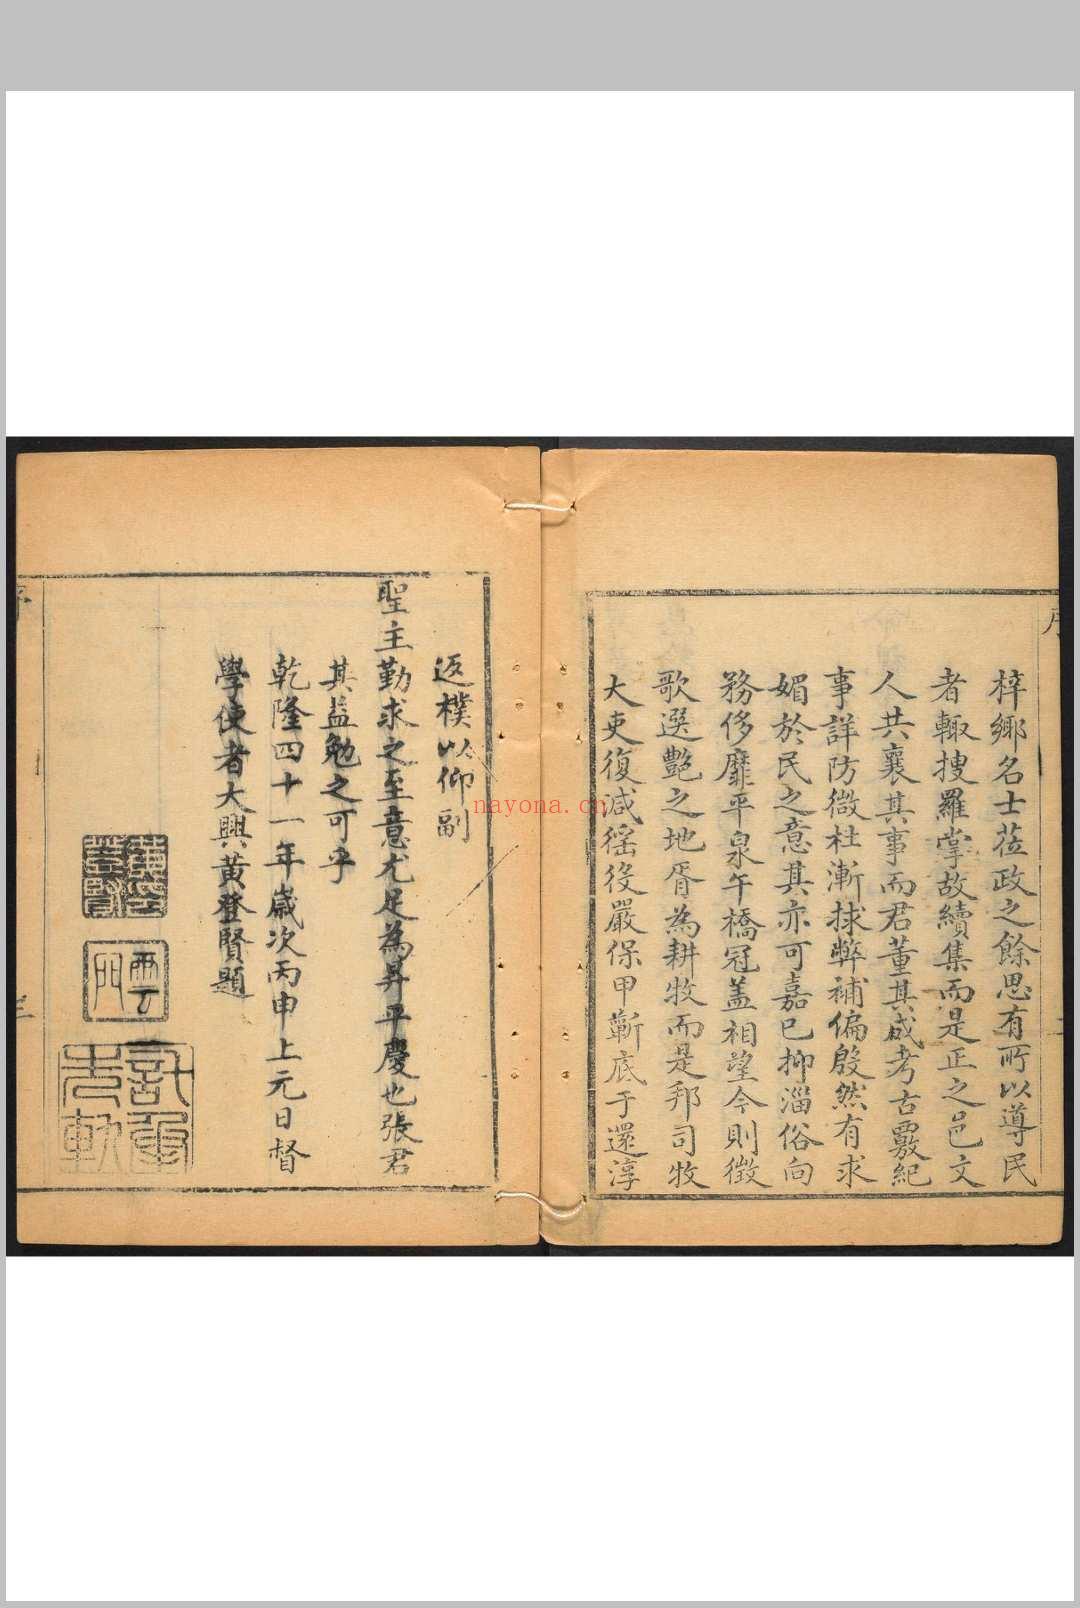 序
梓鄉名士莅政之餘思有所以導民
者輙搜羅掌故續集而是正之邑文
人共襄其事而君董其成考古覈紀
事詳防微杜漸捄弊補偏殷然有求
媚於民之意其亦可嘉已抑淄俗向
務侈靡平泉午橋冠盖相望今則徵
歌選艷之地胥為耕牧而是邦司牧
大吏復减徭役嚴保甲蘄底于還淳
返樸以仰副
聖主勤求之至意尤足為昇平慶也張君
其益勉之可乎
乾隆四十一年歲次丙申上元日督
學使者大興黃登賢題
黃登賢印
雲門
序
三
nayona.cn